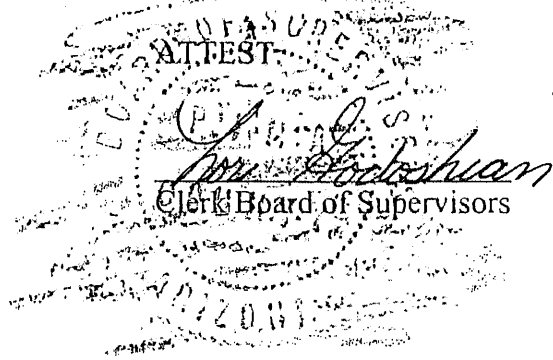 ATTEST:
Lori Godoshian
Clerk, Board of Supervisors